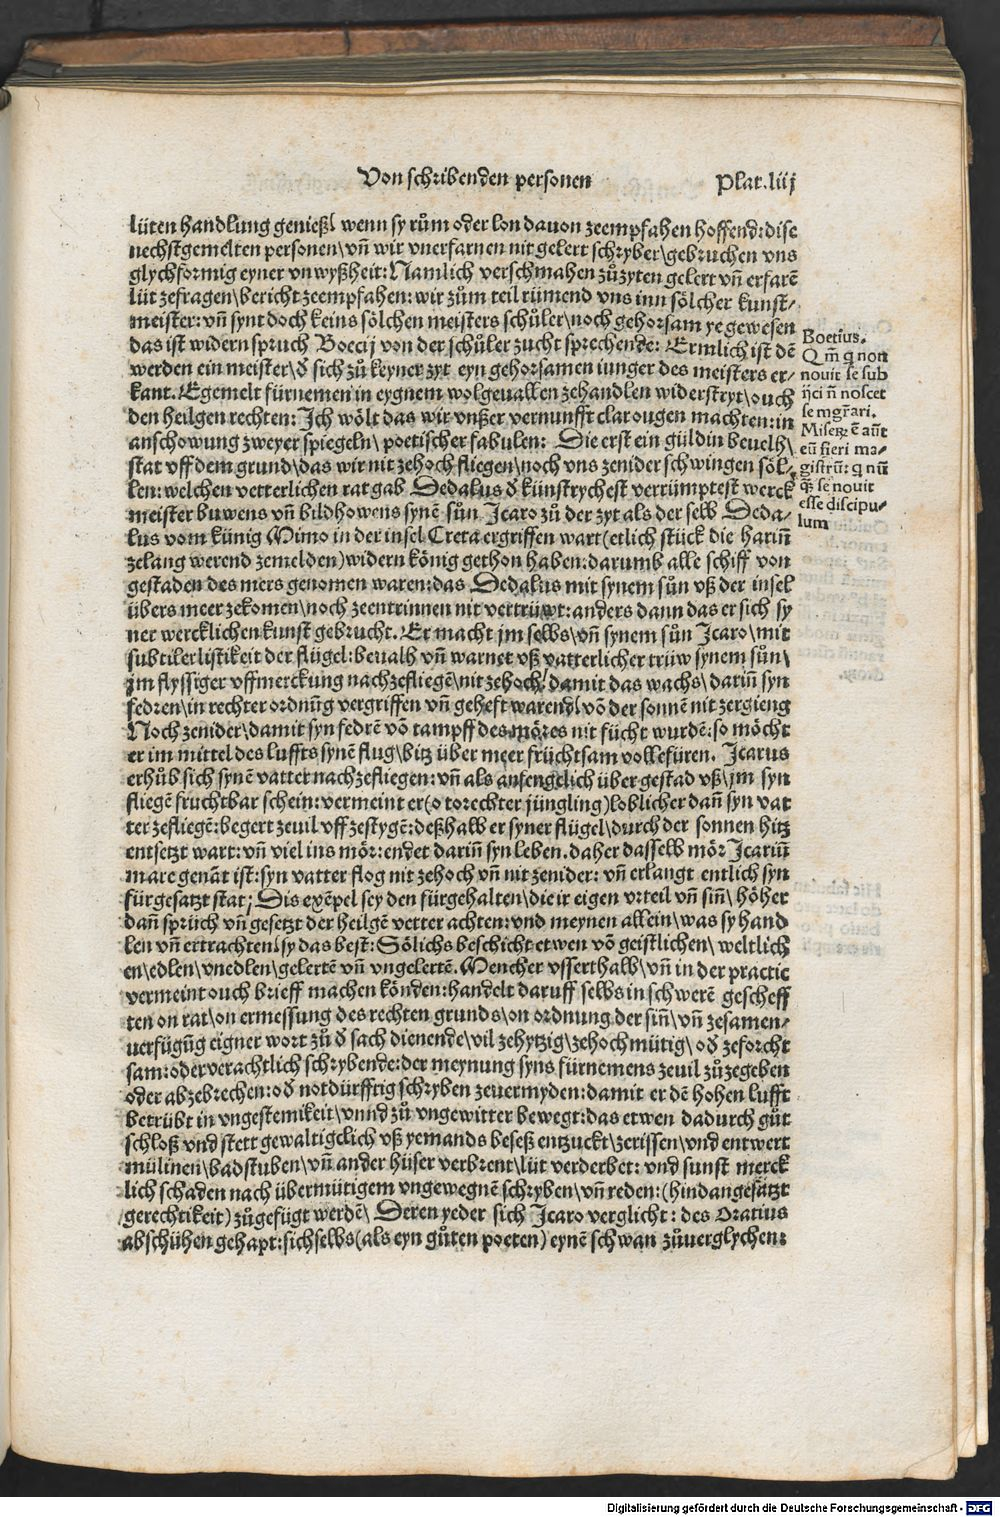 Von schribenden personen
Plat. liij
lüten handlung genießt\ wenn sy rům oder lon dauon zeempfahen hoffend: dise
nechstgemelten personen\ vñ wir vnerfarnen nit gelert schryber\ gebruchen vns
glychformig eyner vnwyßheit: Namlich verschmahen zůzyten gelert vñ erfarē
lüt zefragen\ bericht zeempfahen: wir zům teil rümend vns inn sölcher kunst⸗
meister: vñ synt doch keins sölchen meisters schůler\ noch gehorsam ye gewesen
das ist widern spruch Boecij von der schůler zucht sprechende: Ermlich ist dē
werden ein meister\ ď sich zů keyner zyt eyn gehorsamen iunger des meisters er⸗
kant. Egemelt fürnemen in eygnem wolgeuallen zehandlen widerstryt\ ouch
den heilgen rechten: Ich wölt das wir vnßer vernunfft clar ougen machten: in
anschowung zweyer spiegeln\ poetischer fabulen: Die erst ein güldin beuelh\
stat vff dem grund\ das wir nit ze hoch fliegen\ noch vns ze nider schwingen söl⸗
len: welchen vetterlichen rat gab Dedalus ď künstrychest verrümptest werck
meister buwens vñ bildhowens synē sůn Icaro zů der zyt als der selb Deda⸗
lus vom künig Mimo in der insel Creta ergriffen wart (etlich stück die hariñ
zelang werend zemelden) widern könig gethon haben: darumb alle schiff von
gestaden des mers genomen waren: das Dedalus mit synem sůn vß der insel
übers meer zekomen\ noch zeentrinnen nit vertrüwt: anders dann das er sich sy
ner wercklichen kunst gebrucht. Er macht jm selbs\ vñ synem sůn Icaro\ mit
subtiler listikeit der flügel: beualh vñ warnet vß vatterlicher trüw synem sůn\
jm flyssiger vffmerckung nachzefliegē\ nit ze hoch\ damit das wachs\ dariñ syn
fedren\ in rechter ordnūg vergriffen vñ geheft warend\ vō der sonnen nit zergieng
Noch ze nider\ damit syn fedrē vō tampff des möres nit fücht wurdē: so möcht
er im mittel des luffts synē flug\ bitz über meer früchtsam vollefüren. Icarus
erhůb sich synē vatter nachzefliegen: vñ als anfengclich über gestad vß\ jm syn
fliegē fruchtbar schein: vermeint er (o torechter jüngling) loblicher dañ syn vat
ter zefliegē: begert zeuil vff zestygē: deßhalb er syner flügel\ durch der sonnen hitz
entsetzt wart: vñ viel ins mör: endet dariñ syn leben. daher dasselb mör Icariū
mare genāt ist: syn vatter flog nit ze hoch vñ nit ze nider: vñ erlangt entlich syn
fürgesatzt stat; Dis exēpel sey den fürgehalten\ die ir eigen vrteil vñ siñ\ höher
dañ sprüch vñ gesetzt der heilgē vetter achten: vnd meynen allein\ was sy hand
len vñ ertrachten\ sy das best: Sölichs beschicht etwen vō geistlichen\ weltlich
en\ edlen\ vnedlen\ gelertē vñ vngelertē. Mencher vsserthalb\ vñ in der practic
vermeint ouch brieff machen könden: handelt daruff selbs in schwerē gescheff
ten on rat\ on ermessung des rechten grunds\ on ordnung der siñ\ vñ zesamen⸗
uerfügūg eigner wort zů ď sach dienende\ vil ze hytzig\ ze hochmütig\ oď ze forcht
sam: oder verachtlich schrybende: der meynung syns fürnemens zeuil zůzegeben
oder abzebrechen: oď notdürfftig schryben zeuermyden: damit er dē hohen lufft
betrübt in vngestemikeit\ vnnd zů vngewitter bewegt: das etwen dadurch gůt
schloß vnd stett gewaltigclich vß yemands beseß entzuckt\ zerissen\ vnd entwert
mülinen\ badstuben\ vñ ander hüser verbrent\ lüt verderbet: vnd sunst merck
lich schaden nach übermütigem vngewegnē schryben\ vñ reden: (hindangesatzt
gerechtikeit) zůgefügt werdē\ Deren yeder sich Icaro verglicht: des Oratius
abschühen gehapt: sich selbs (als eyn gůten poeten) eynē schwan zůuerglychen:
Boetius.
Q m̄ q non
nouit se sub
ijci n̄ noscet
se mḡrari.
Miserꝝ ē aūt
eū fieri ma⸗
gistrū: q nū
qꝫ se nouit
esse discipu⸗
lum
Digitalisierung gefördert durch die Deutsche Forschungsgemeinschaft - DFG